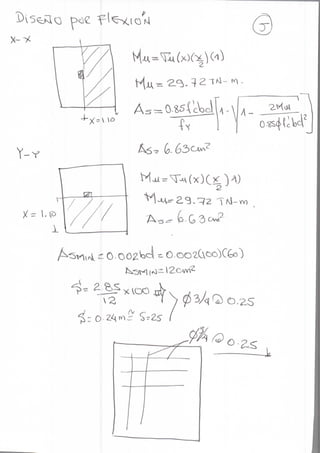 DISEÑO POR FLEXIÓN
J
X-X
Mu=Tu(x)(x/2)(1)
Mu=29.72 TN-m.
As=0.85f'cbd/fy[1-√1-2Mu/0.85φf'cbd²]
X=1.10
As=6.63cm²
Y-Y
Mu=Tu(x)(x/2)1)
Mu=29.72 TN-m.
X=1.10
As=6.63cm²
ASMIN=0.002bd=0.002(100)(60)
ASMIN=12cm²
S=2.85/12x100
φ3/4@0.25
S=0.24m≅S=25
φ3/4@0.25